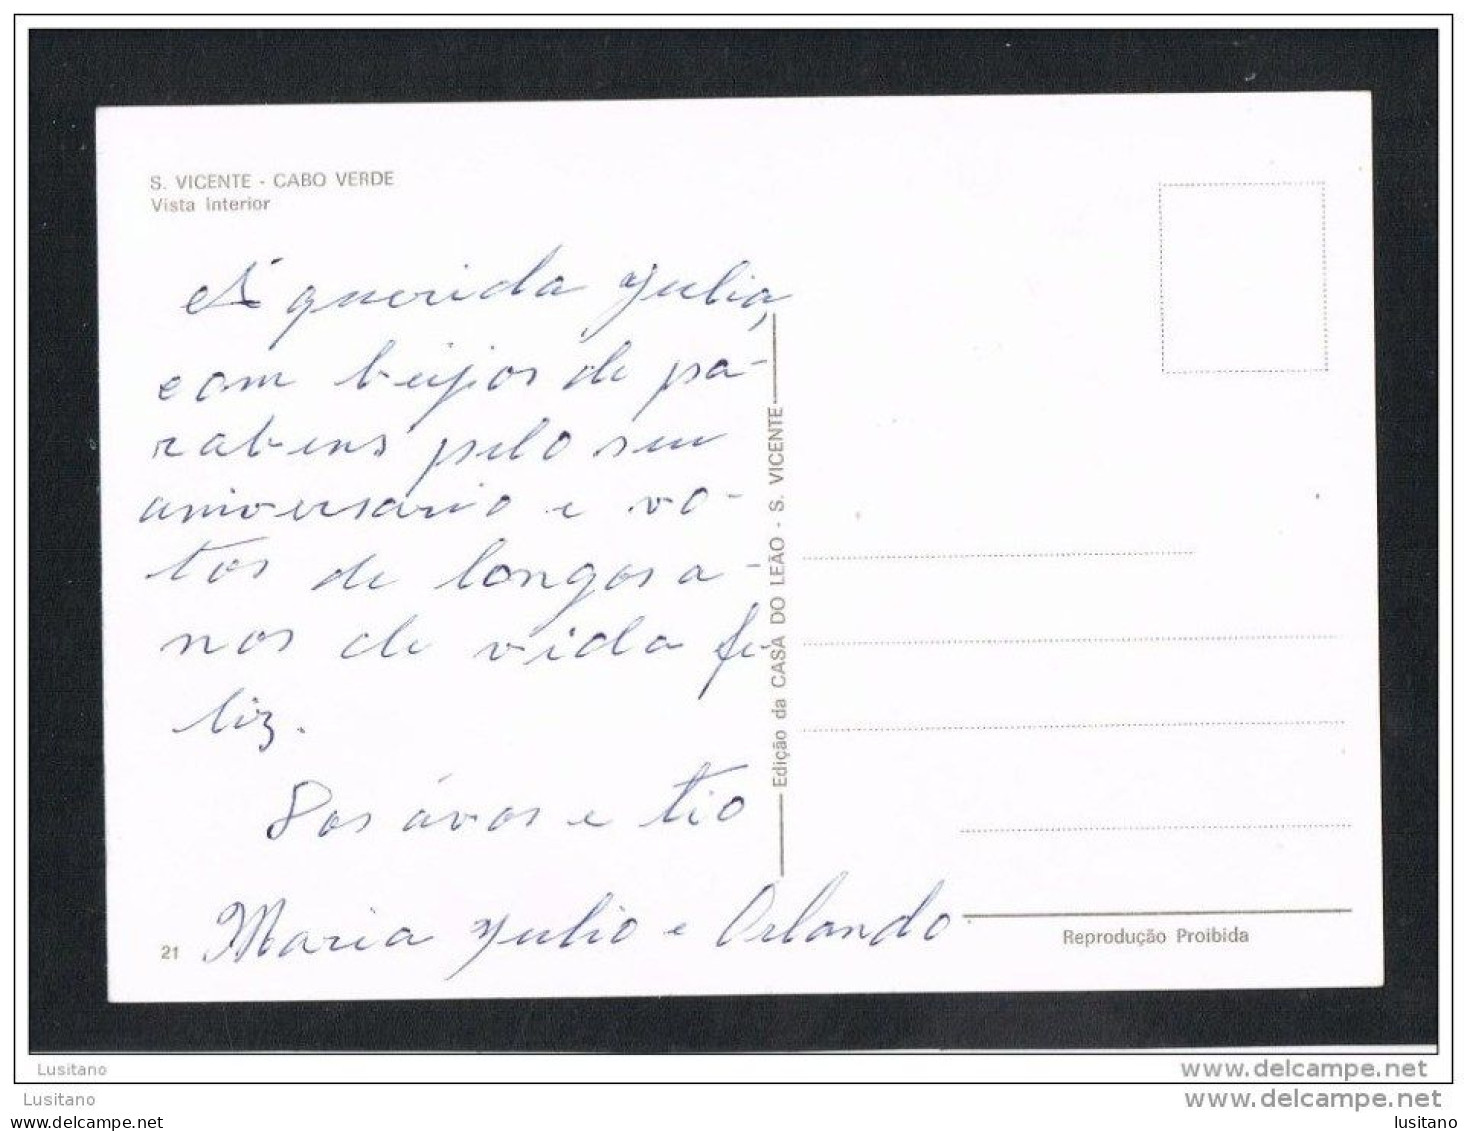 S. VICENTE - CABO VERDE
Vista Interior
Á querida Julia,
com beijos de pa-
rabens pelo seu
aniversario e vo-
tos de longos a-
nos de vida fe
liz.
Dos ávos e tio
Maria Julio e Orlando
21
Edição da CASA DO LEÃO - S. VICENTE
Reprodução Proibida
Lusitano
www.delcampe.net
Lusitano
www.delcampe.net
postershop.com
lusitano
lusitano